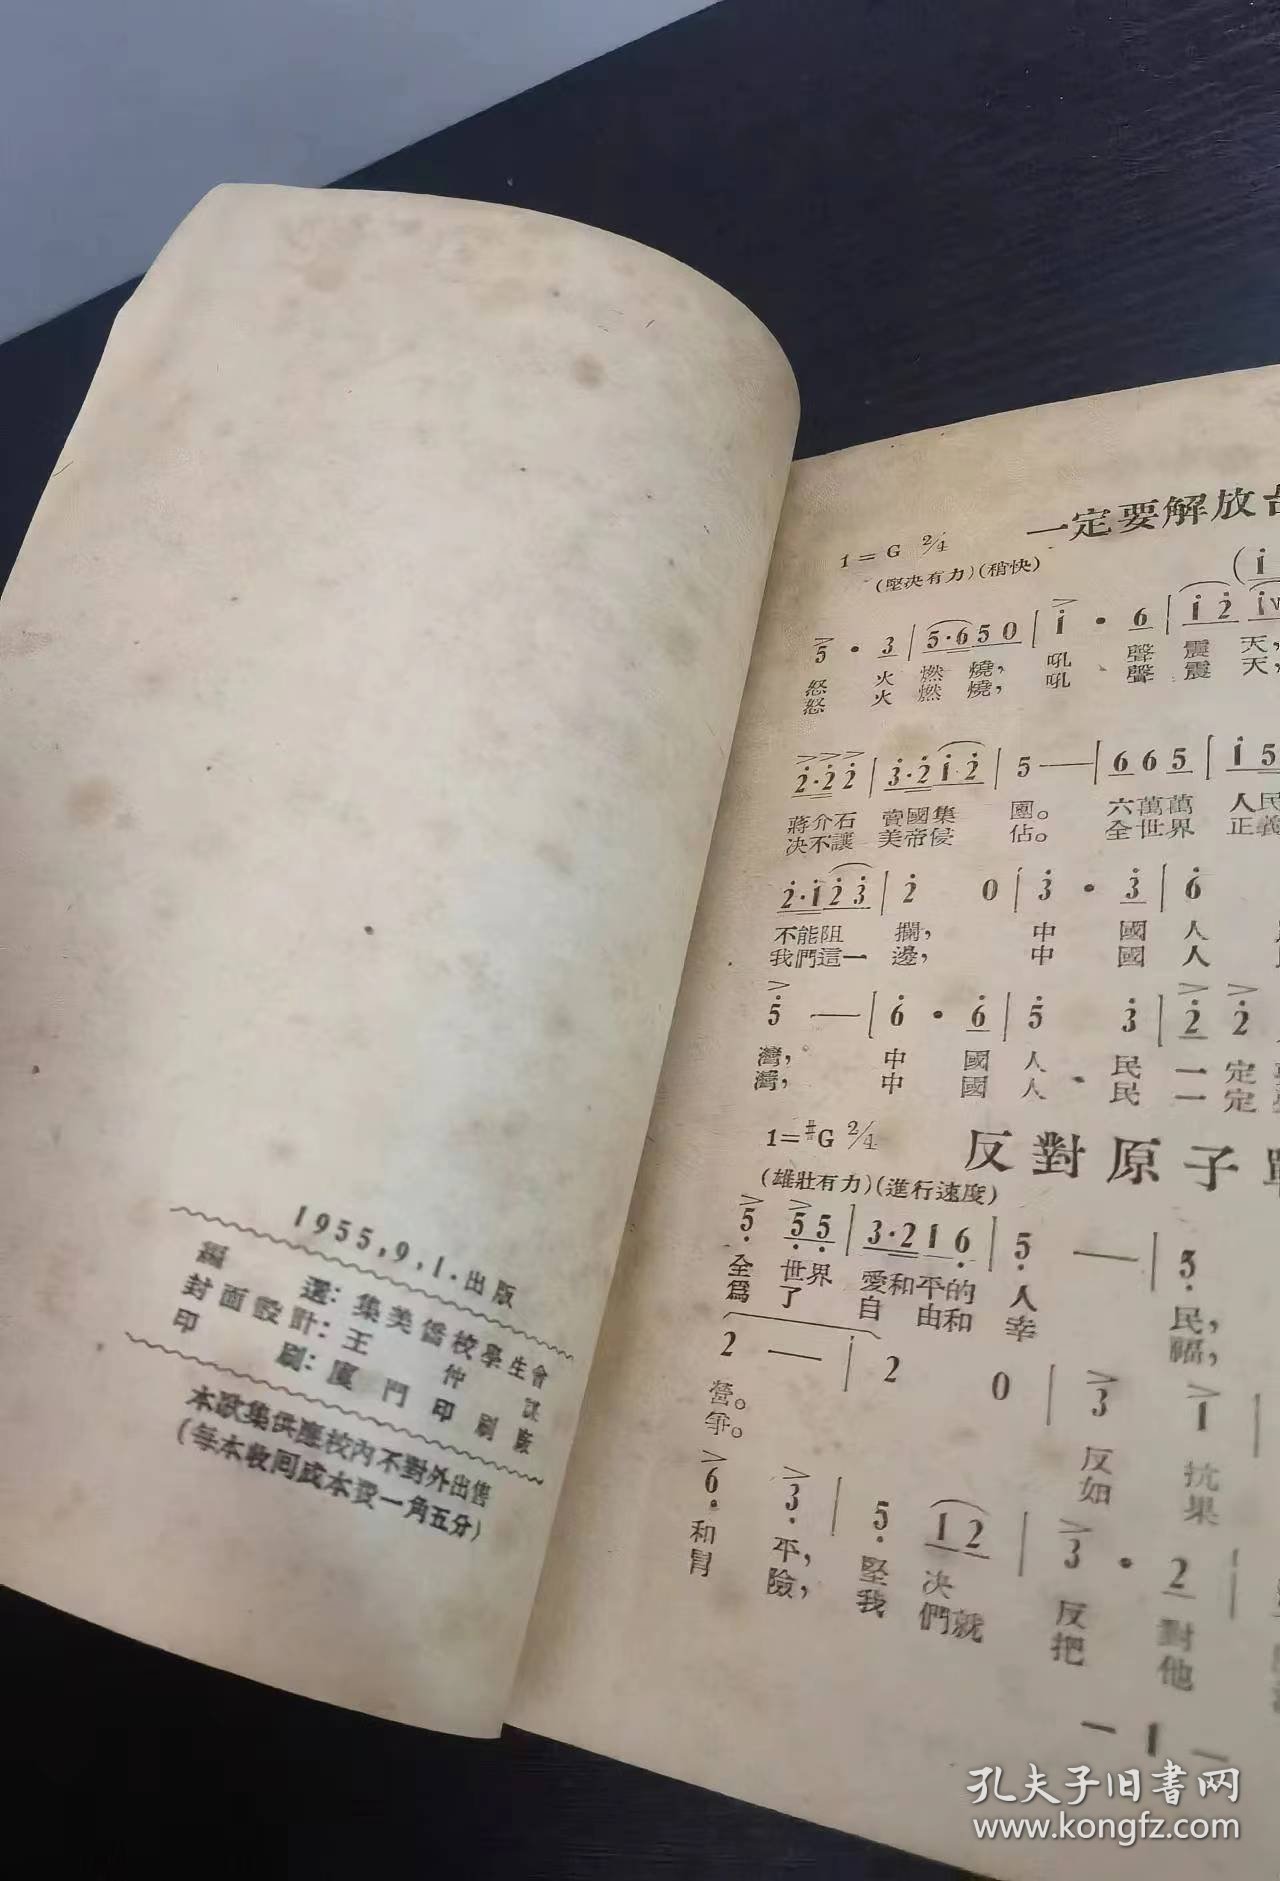 1955,9,1.出版
編 選:集美僑校學生會
封面設計:王 仲 謀
印 刷:廈門印刷廠
本歌集供應校內不對外出售
(每本收囘成本費一角五分)
一定要解放
1=G 2/4
(堅决有力)(稍快)
(i
5 · 3 | 5·6 5 0 | i · 6 | i 2 i
怒 火 燃 燒, 吼 聲 震 天,
怒 火 燃 燒, 吼 聲 震 天,
2·2 2 | 3·2 i 2 | 5 — | 6 6 5 | i 5
蔣介石 賣國集 團。 六萬萬 人民
决不讓 美帝侵 佔。 全世界 正義
2·i 2 3 | 2 0 | 3 · 3 | 6
不能阻 攔, 中 國 人
我們這一 邊, 中 國 人
5 — | 6 · 6 | 5 3 | 2 2
灣, 中 國 人 民 一 定
灣, 中 國 人 民 一 定
1=#G 2/4 反對原子
(雄壯有力)(進行速度)
5 5 5 | 3·2 1 6 | 5 — | 5
全 世界 愛和平的 人 民,
爲 了 自 由和 幸 福,
2 — | 2 0 | 3 1
營。 反 抗
爭。 如 果
6 3 | 5 1 2 | 3 · 2
和 平, 堅 决 反 對
冒 險, 我 們就 把 他
— 1 —
孔夫子旧書网
www.kongfz.com